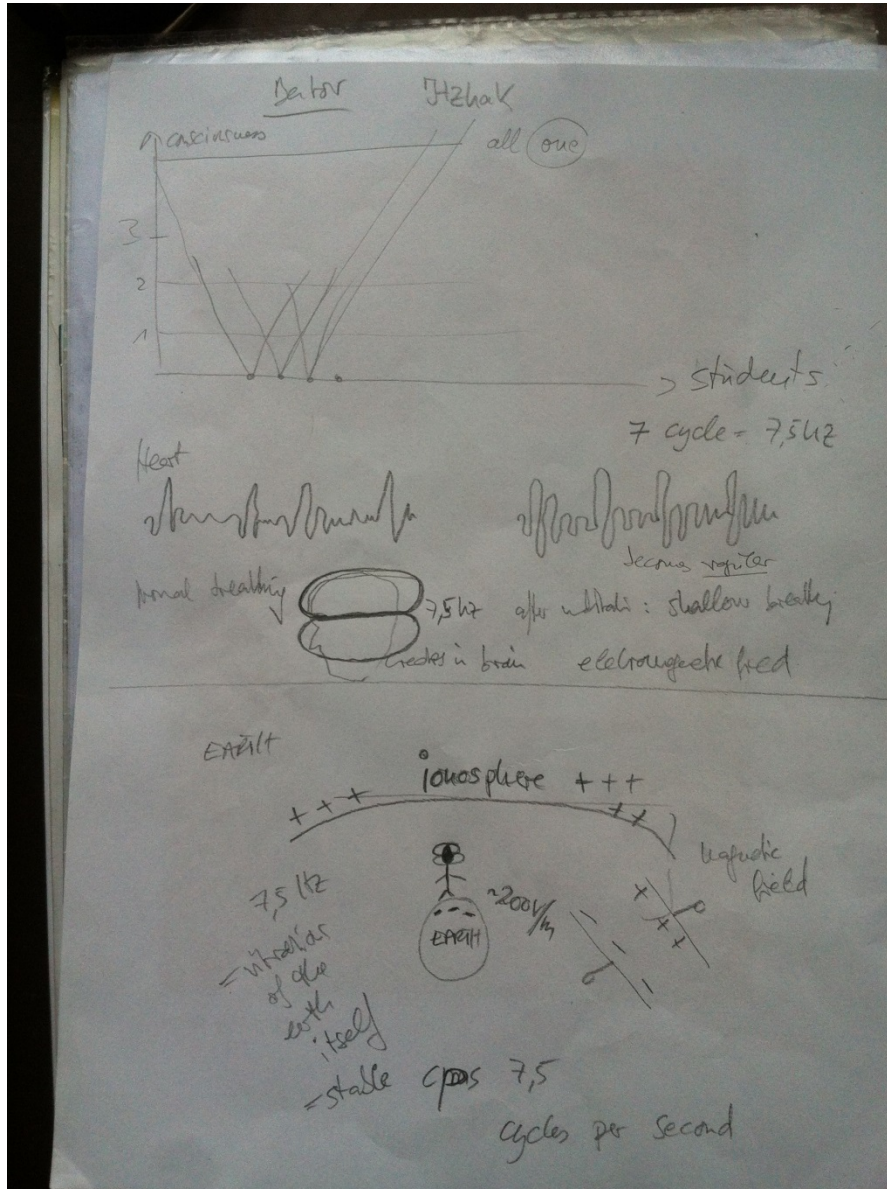 Bentov Itzhak
consciousness
all one
3
2
1
> students
7 cycle = 7,5 HZ
Heart
becomes regular
normal breathing
7,5 hz after meditation: shallow breathing
creates in brain elektromagnetic field
EARTH
ionosphere +++
+ + +
++
magnetic
field
7,5 Hz
~200V/m
EARTH
= vibration
of the
earth
itself
= stable cps 7,5
cycles per second